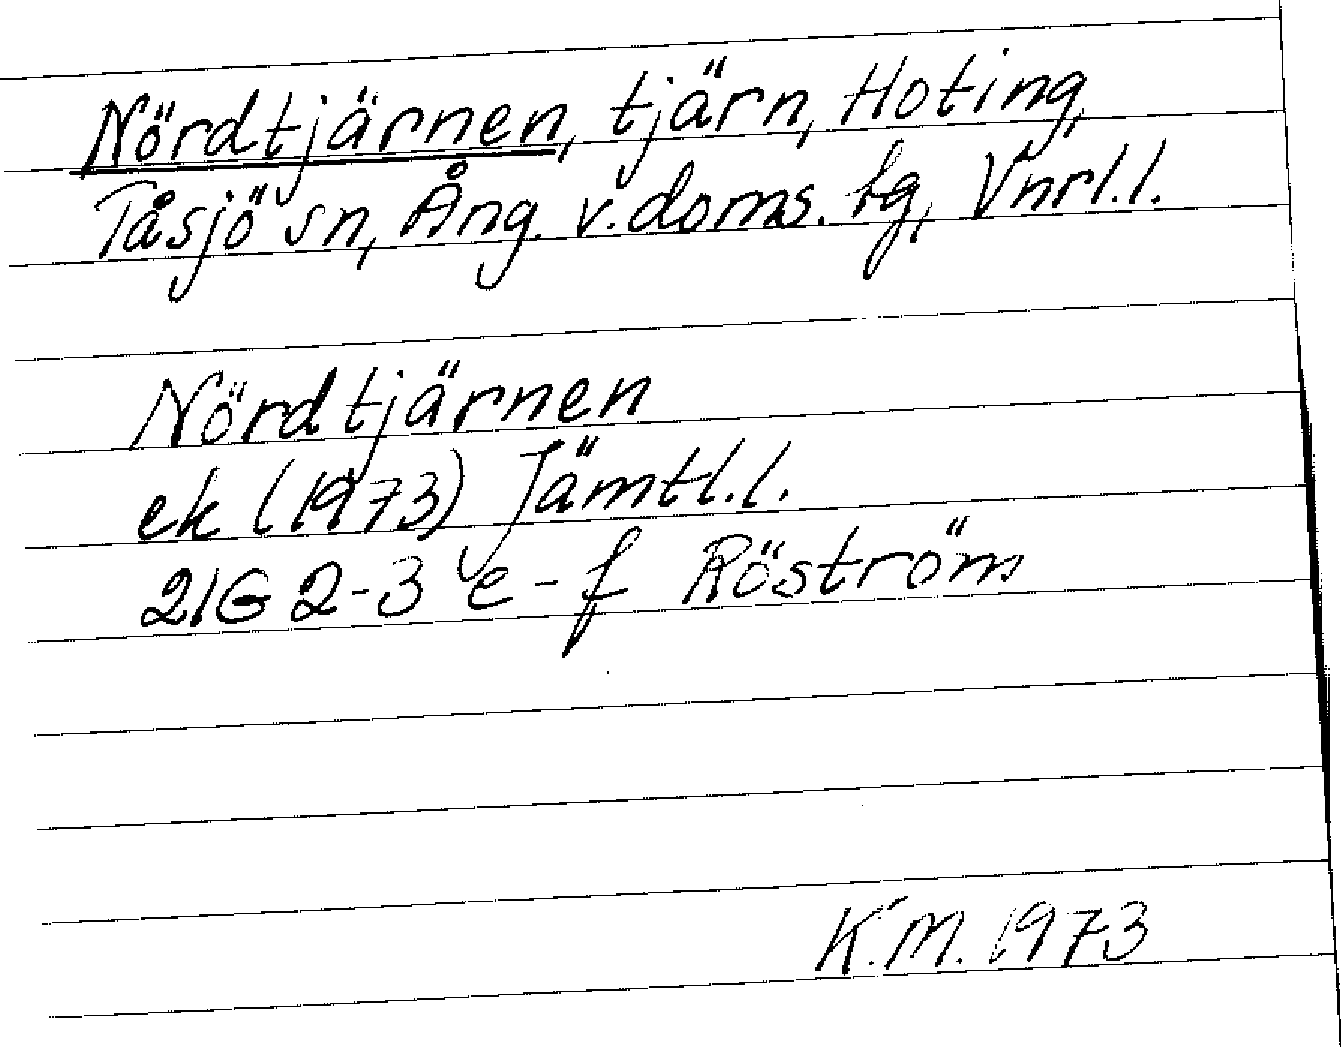 Nördtjärnen, tjärn, Hoting,
Tåsjö sn, Ång. v. doms. tg, Vnrl.l.
Nördtjärnen
ek (1973) Jämtl.l.
21G 2-3 e-f Röström
K.M. 1973